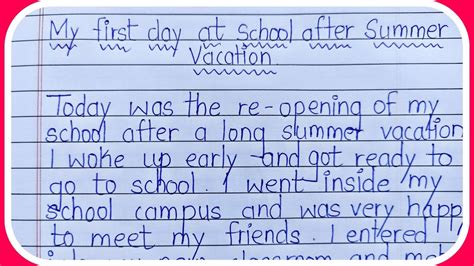 My first day at School after Summer
Vacation
Today was the re-opening of my
school after a long summer vacation
I woke up early and got ready to
go to school. I went inside my
school campus and was very happ
to meet my friends. I entered
new classroom and